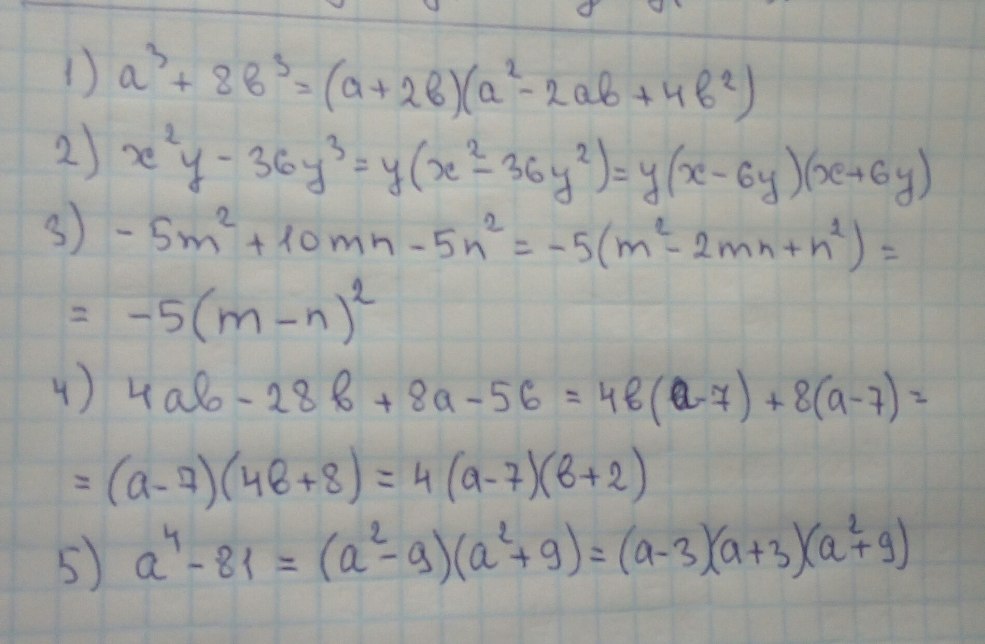 1) a³ + 8в³ = (a + 2в)(a² - 2aв + 4в²)
2) x²y - 36y³ = y(x² - 36y²) = y(x - 6y)(x + 6y)
3) -5m² + 10mn - 5n² = -5(m² - 2mn + n²) =
= -5(m - n)²
4) 4aв - 28в + 8a - 56 = 4в(a - 7) + 8(a - 7) =
= (a - 7)(4в + 8) = 4(a - 7)(в + 2)
5) a⁴ - 81 = (a² - 9)(a² + 9) = (a - 3)(a + 3)(a² + 9)